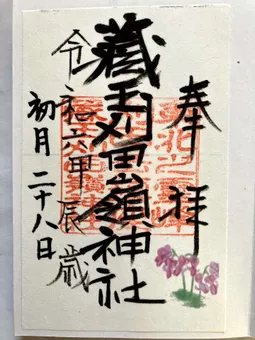 奉拝
蔵王刈田嶺神社
令和六甲辰歳
初月二十八日